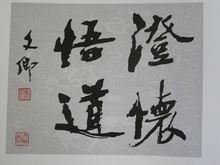 澄懷
悟道
文鄉